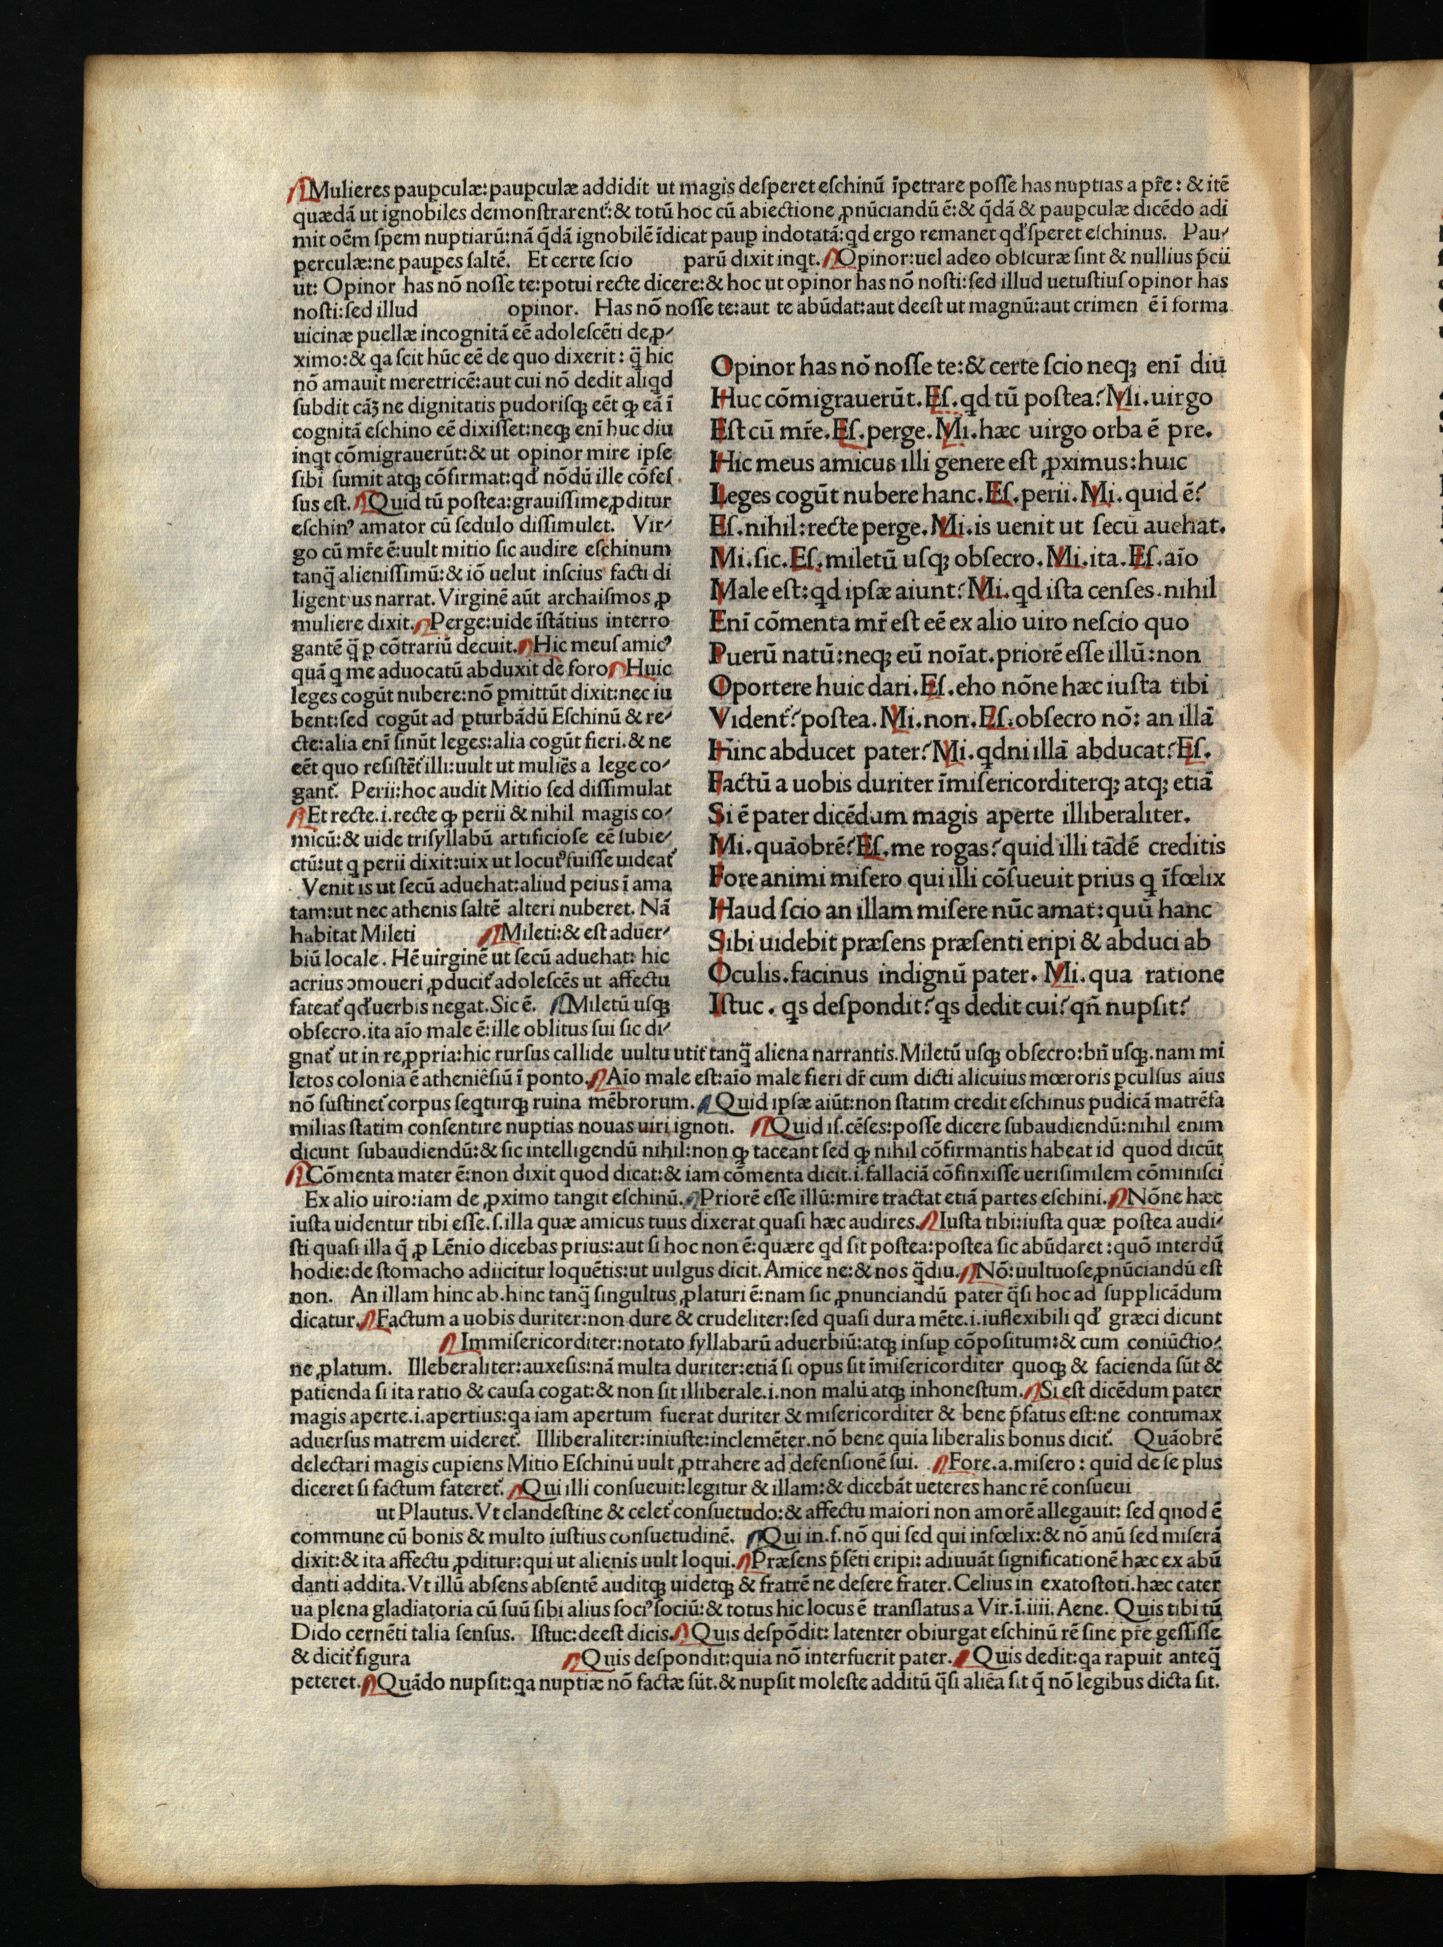 Mulieres paupculæ: paupculæ addidit ut magis desperet eschinũ ĩpetrare posse has nuptias a pr̃e: & itẽ
quædã ut ignobiles demonstrarent᷑: & totũ hoc cũ abiectione ꝓnũciandũ ẽ: & q̃dã & paupculæ dicẽdo adi
mit oẽm spem nuptiarũ: nã q̃dã ignobilẽ ĩdicat paup indotatã: qd ergo remanet qđ speret eschinus. Pau/
perculæ: ne paupes saltẽ. Et certe scio parũ dixit inqt. Opinor: uel adeo obscuræ sint & nullius p̃cii
ut: Opinor has nõ nosse te: potui recte dicere: & hoc ut opinor has nõ nosti: sed illud uetustius opinor has
nosti: sed illud opinor. Has nõ nosse te: aut te abũdat: aut deest ut magnũ: aut crimen ẽ ĩ forma
uicinæ puellæ incognitã eẽ adolescẽti de ꝓ/
ximo: & qa scit hũc eẽ de quo dixerit: q̃ hic
nõ amauit meretricẽ: aut cui nõ dedit aliqd
subdit cãꝫ ne dignitatis pudorisqꝫ eẽt ꝙ eã ĩ
cognitã eschino eẽ dixisset: neqꝫ enĩ huc diu
inqt cõmigrauerũt: & ut opinor mire ipse
sibi sumit atqꝫ cõfirmat: qđ nõdũ ille cõfes
sus est. Quid tũ postea: grauissime ꝓditur
eschinꝰ amator cũ sedulo dissimulet. Vir/
go cũ mr̃e ẽ: uult mitio sic audire eschinum
tanq̃ alienissimũ: & iõ uelut inscius facti di
ligentius narrat. Virginẽ aũt archaismos ꝓ
muliere dixit. Perge: uide ĩstãtius interro
gantẽ q̃ p cõtrariũ decuit. Hic meus amicꝰ
quã q me aduocatũ abduxit de foro Huic
leges cogũt nubere: nõ pmittũt dixit: nec iu
bent: sed cogũt ad pturbãdũ Eschinũ & re/
cte: alia enĩ sinũt leges: alia cogũt fieri. & ne
eẽt quo resistẽt᷑ illi: uult ut muliẽs a lege co/
gant᷑. Perii: hoc audit Mitio sed dissimulat
Et recte. i. recte ꝙ perii & nihil magis co/
micũ: & uide trisyllabũ artificiose eẽ subie/
ctũ: ut q perii dixit: uix ut locutꝰ fuisse uideat᷑
Venit is ut secũ aduehat: aliud peius ĩ ama
tam: ut nec athenis saltẽ alteri nuberet. Nã
habitat Mileti Mileti: & est aduer/
biũ locale. Hẽ uirginẽ ut secũ aduehat: hic
acrius ↄmoueri ꝓducit᷑ adolescẽs ut affectu
fateat᷑ qđ uerbis negat. Sic ẽ. Miletũ usqꝫ
obsecro. ita aĩo male ẽ: ille oblitus sui sic di/
gnat᷑ ut in re ꝓpria: hic rursus callide uultu utit᷑ tanq̃ aliena narrantis. Miletũ usqꝫ obsecro: bñ usqꝫ. nam mi
letos colonia ẽ atheniẽsiũ ĩ ponto. Aĩo male est: aĩo male fieri dr̃ cum dicti alicuius mœroris pculsus aĩus
nõ sustinet᷑ corpus seqturqꝫ ruina mẽbrorum. Quid ipsæ aiũt: non statim credit eschinus pudicã matrẽfa
milias statim consentire nuptias nouas uiri ignoti. Quid is. cẽses: posse dicere subaudiendũ: nihil enim
dicunt subaudiendũ: & sic intelligendũ nihil: non ꝙ taceant sed ꝙ nihil cõfirmantis habeat id quod dicũt
Cõmenta mater ẽ: non dixit quod dicat: & iam cõmenta dicit. i. fallaciã cõfinxisse uerisimilem cõminisci
Ex alio uiro: iam de ꝓximo tangit eschinũ. Priorẽ esse illũ: mire tractat etiã partes eschini. Nõne hæc
iusta uidentur tibi esse. s. illa quæ amicus tuus dixerat quasi hæc audires. Iusta tibi: iusta quæ postea audi/
sti quasi illa q̃ ꝓ Lẽnio dicebas prius: aut si hoc non ẽ: quære qd sit postea: postea sic abũdaret: quõ interdũ
hodie: de stomacho adiicitur loquẽtis: ut uulgus dicit. Amice ne: & nos q̃diu. Nõ: uultuose ꝓnũciandũ est
non. An illam hinc ab. hinc tanq̃ singultus ꝓlaturi ẽ: nam sic ꝓnunciandũ pater q̃si hoc ad supplicãdum
dicatur. Factum a uobis duriter: non dure & crudeliter: sed quasi dura mẽte. i. iuflexibili qđ græci dicunt
Immisericorditer: notato syllabarũ aduerbiũ: atqꝫ insup cõpositum: & cum coniũctio/
ne ꝓlatum. Illeberaliter: auxesis: nã multa duriter: etiã si opus sit ĩmisericorditer quoqꝫ & facienda sũt &
patienda si ita ratio & causa cogat: & non sit illiberale. i. non malũ atqꝫ inhonestum. Si est dicẽdum pater
magis aperte. i. apertius: qa iam apertum fuerat duriter & misericorditer & bene p̃fatus est: ne contumax
aduersus matrem uideret᷑. Illiberaliter: iniuste: inclemẽter. nõ bene quia liberalis bonus dicit᷑. Quãobrẽ
delectari magis cupiens Mitio Eschinũ uult ꝓtrahere ad defensionẽ sui. Fore. a. misero: quid de se plus
diceret si factum fateret᷑. Qui illi consueuit: legitur & illam: & dicebãt ueteres hanc rẽ consueui
ut Plautus. Vt clandestine & celet᷑ consuetudo: & affectu maiori non amorẽ allegauit: sed qnod ẽ
commune cũ bonis & multo iustius consuetudinẽ. Qui in. f. nõ qui sed qui infœlix: & nõ anũ sed miserã
dixit: & ita affectu ꝓditur: qui ut alienis uult loqui. Præsens p̃sẽti eripi: adiuuãt significationẽ hæc ex abũ
danti addita. Vt illũ absens absentẽ auditqꝫ uidetqꝫ & fratrẽ ne desere frater. Celius in exatostoti. hæc cater
ua plena gladiatoria cũ suũ sibi alius socꝰ sociũ: & totus hic locus ẽ translatus a Vir. ĩ. iiii. Aene. Quis tibi tũ
Dido cernẽti talia sensus. Istuc: deest dicis. Quis despõdit: latenter obiurgat eschinũ rẽ sine pr̃e gessisse
& dicit᷑ figura Quis despondit: quia nõ interfuerit pater. Quis dedit: qa rapuit anteq̃
peteret. Quãdo nupsit: qa nuptiæ nõ factæ sũt. & nupsit moleste additũ q̃si aliẽa sit q̃ nõ legibus dicta sit.
Opinor has nõ nosse te: & certe scio neqꝫ enĩ diu
Huc cõmigrauerũt. Es. qd tũ postea? Mi. uirgo
Est cũ mr̃e. Es. perge. Mi. hæc uirgo orba ẽ pre.
Hic meus amicus illi genere est ꝓximus: huic
Leges cogũt nubere hanc. Es. perii. Mi. quid ẽ?
Es. nihil: recte perge. Mi. is uenit ut secũ auehat.
Mi. sic. Es. miletũ usqꝫ obsecro. Mi. ita. Es. aĩo
Male est: qd ipsæ aiunt? Mi. qd ista censes. nihil
Enĩ cõmenta mr̃ est eẽ ex alio uiro nescio quo
Puerũ natũ: neqꝫ eũ noĩat. priorẽ esse illũ: non
Oportere huic dari. Es. eho nõne hæc iusta tibi
Vident᷑? postea. Mi. non. Es. obsecro nõ: an illã
Hinc abducet pater? Mi. qdni illã abducat? Es.
Factũ a uobis duriter ĩmisericorditerqꝫ atqꝫ etiã
Si ẽ pater dicẽdum magis aperte illiberaliter.
Mi. quãobrẽ? Es. me rogas? quid illi tãdẽ creditis
Fore animi misero qui illi cõsueuit prius q ĩfœlix
Haud scio an illam misere nũc amat: quũ hanc
Sibi uidebit præsens præsenti eripi & abduci ab
Oculis. facinus indignũ pater. Mi. qua ratione
Istuc. qs despondit? qs dedit cui? qñ nupsit?